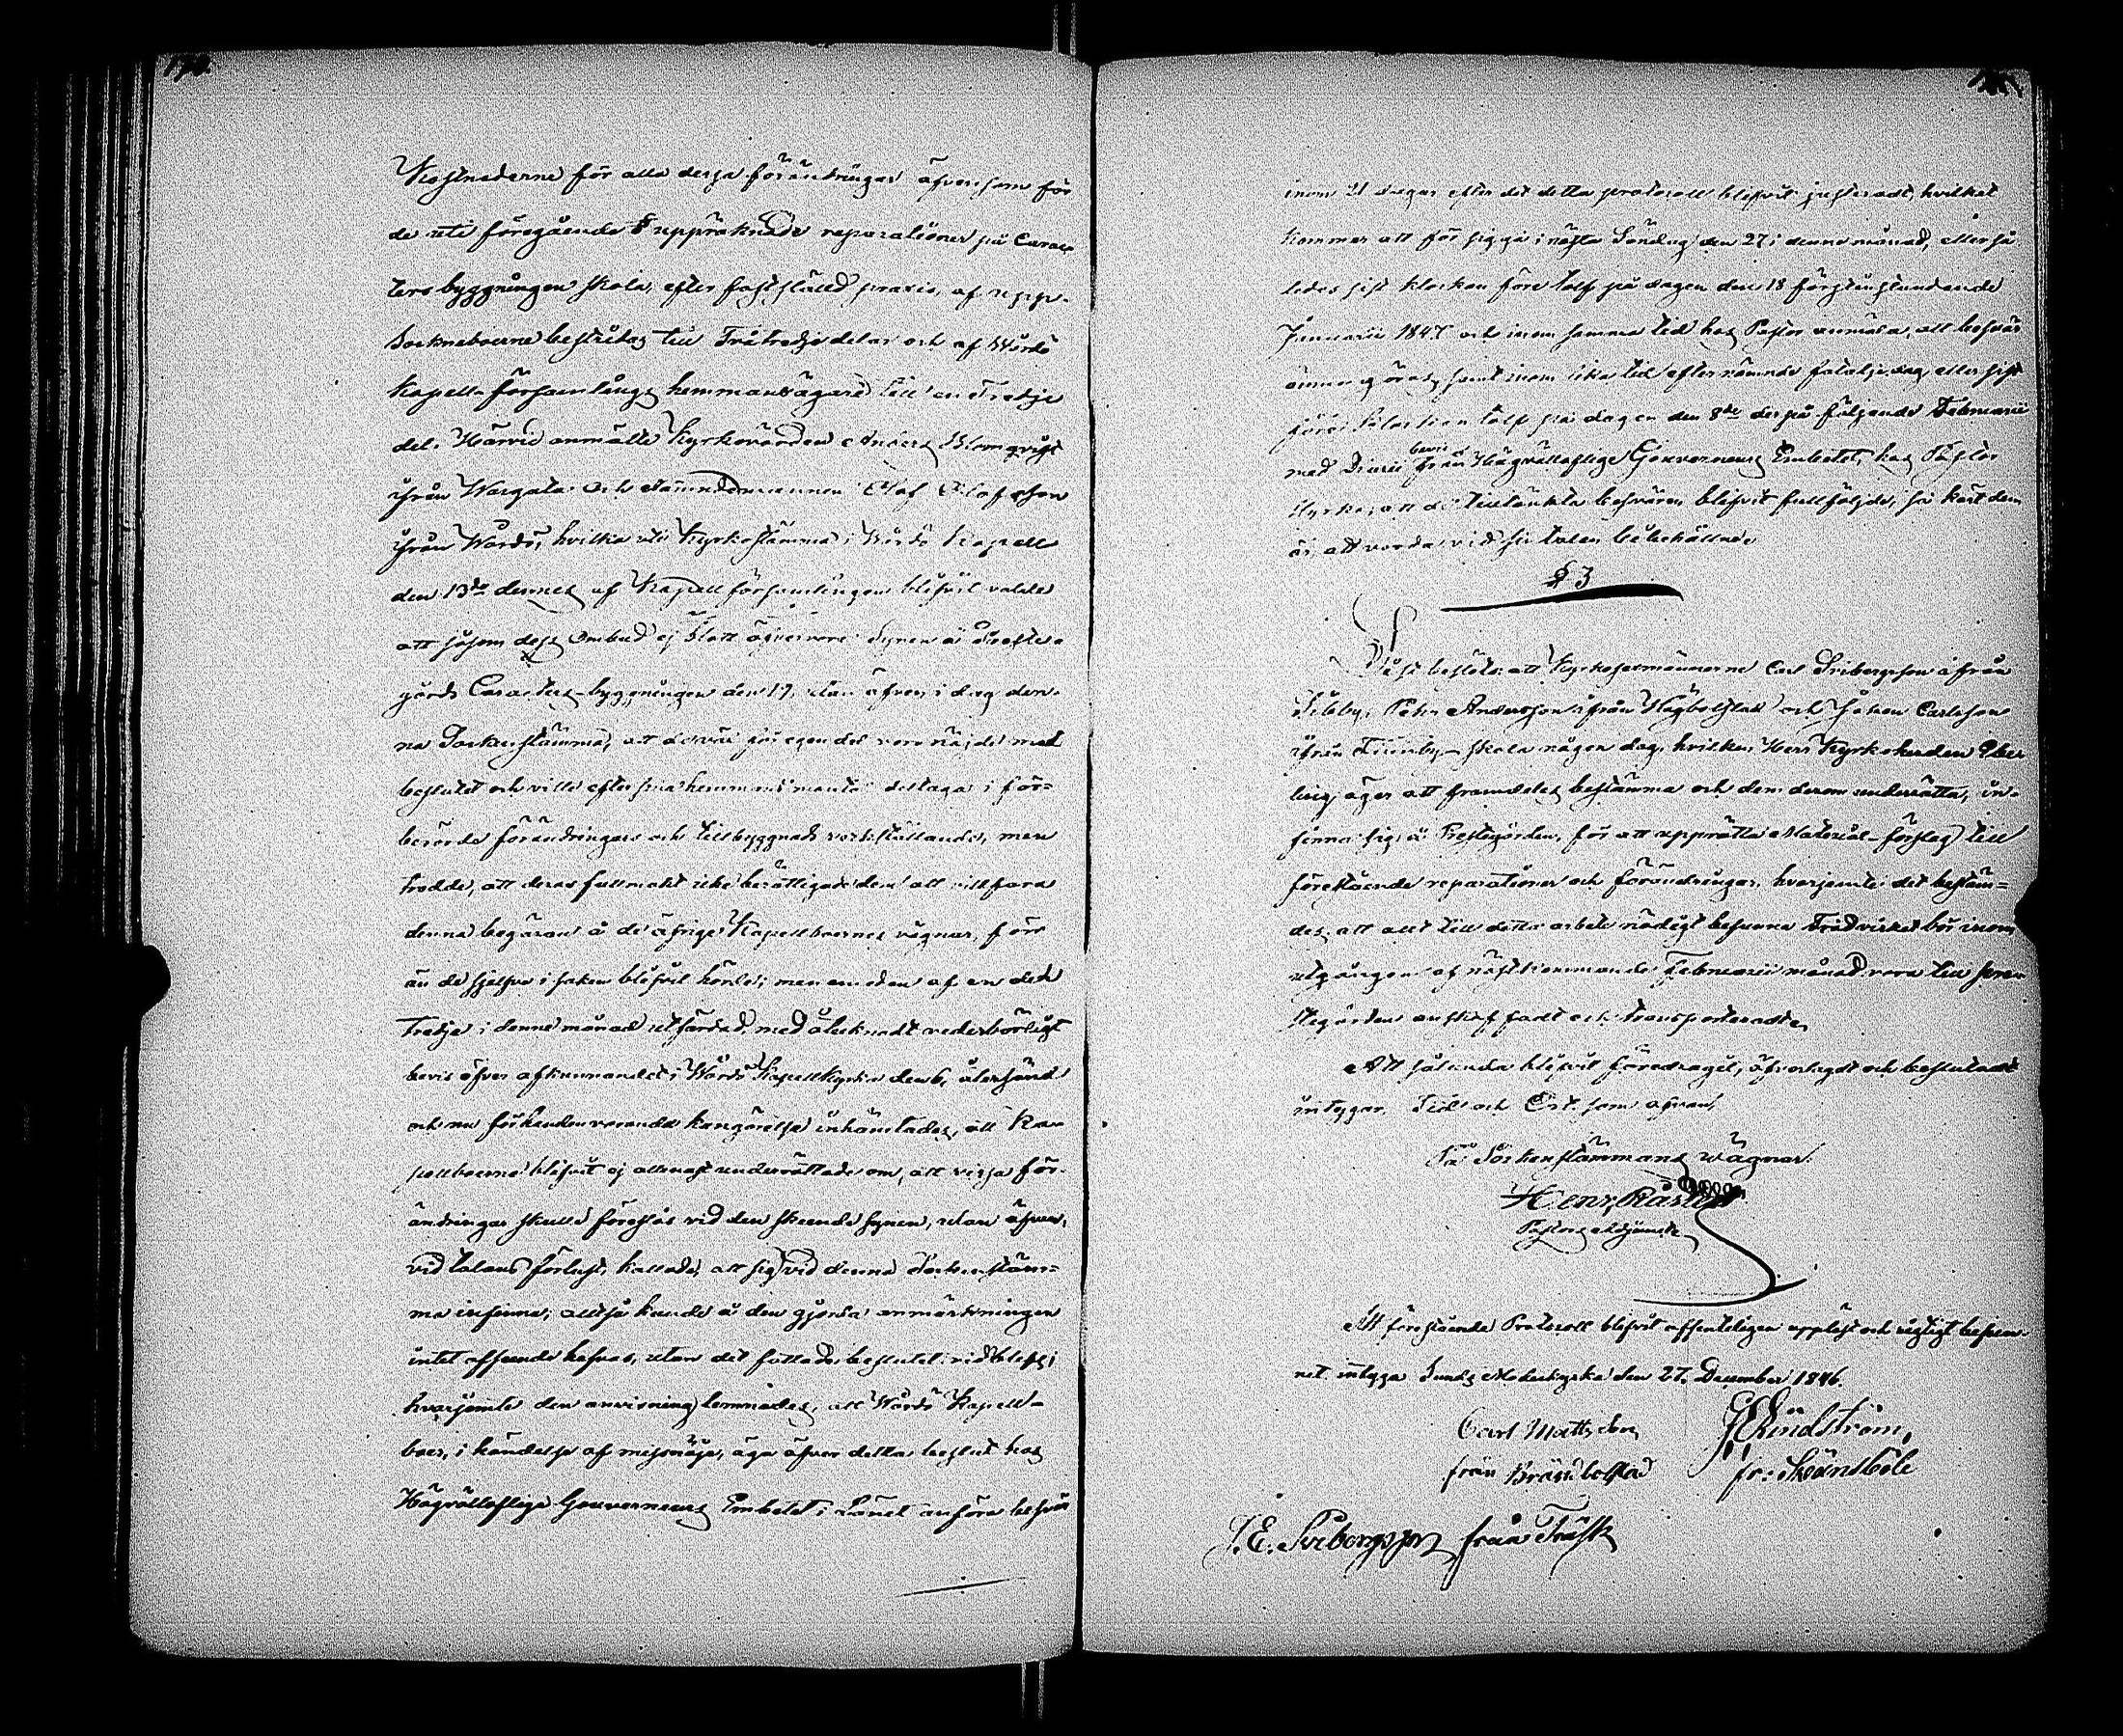 Kostnaderne för alla dessa förändringar äfvensom för
de uti föregående § uppräknade reparationer på Carac-
ters byggningen skola, efter fastställd praxis, af
Sockneboerne bestridas till Tvåtredje delar och af Wårdö
Kapells församlings hemmansägare till en Tredje
del. Härvid anmälte Kyrkovärden Anders Blomqvist
ifrån Wargata och Nämndemannen Olof Olofsson
ifrån Wårdö, hvilka uti Kyrkostämma i Wårdö Kapell
den 13de dennes af Kapellförsamlingen blifvit valde
att såsom dess Ombud ej blott öfvervara Synen å Preste-
gårds Caracters-byggningen den 17, utan äfven i dag den-
na Sockenstämma, att de väl för egen del voro nöjde med
beslutet och ville efter sina hemmans mantal deltaga i för-
berörda förändringars och tillbyggnads verkställande, men
trodde, att deras fullmakt icke berättigade dem att villfara
denna begäran å de öfrige Kapellboernes vägnar, förr
än de sjelfve i saken blifvit hörde; men emedan af en den
Tredje i denne månad utfärdad, med åtecknadt vederbörligt
bevis öfver afkunnandet i Wårdö Kapellkyrka den 6, återsänd
och nu förhandenvarande kungörelse inhämtades, att Ka-
pellboerne blifvit ej allenast underrättade om, att vissa för-
ändringar skulle föreslås vid den skeende synen, utan äfven,
vid talans förlust, kallade, att sig vid denna Sockenstäm-
ma infinna; alltså kunde å den gjorda anmärkningen
intet afseende hafvas, utan det fattade beslutet vidblefs;
hvarjemte den anvisning lemnades, att Wårdö Kapell-
boer, i händelse af missnöje, äga öfver detta beslut hos
Högvälloflige Gouverneurs Embetet i Länet anföra besvär
inom 21 dagar efter det detta protocoll blifvit justeradt, hvilket
kommer att för sig gå i nästa Söndag den 27 i denne månad, eller så-
ledes sist klockan före tolf på dagen den 18 förstinstundande
Januarii 1847 och inom samma tid hos Pastor anmäla, att besvär
ämna göras, samt inom lika tid efter nämnde fatalje dag eller sist
före klockan tolf på dagen den 8de derpå följande Februarii
med Diarii bevis från Högvällofliga Gouverneurs Embetet, hos Pastor
styrka, att de tilltänkta besvären blifvit fullföljde, så kärt dem
är att varda vid sin talan bibehållne
§ 3
Sist beslöts att Kyrkosexmännerne Carl Sviberggson ifrån
Sibby, Petter Andersson ifrån Högbolstad och Johan Carlsson
ifrån Finnby skola någon dag, hvilken Herr Kyrkoherden
äger att framdeles bestämma och dem derom underrätta, in-
finna sig å Prestgården, för att upprätta Material-förslag till
förestående reparationer och förändringar, hvarjemte det bestäm-
des, att allt till detta arbete nödigt befunne Trädvirket bör inom
utgången af nästkommande Februarii månad vara till Pre-
stegården anskaffadt och transporteradt.
Att sålunda blifvit föredraget, öfverlagdt och beslutadt
intygar. Tid och Ort som ofvan,
På Sockenstämmans wägnar:
Henr.
Pastors adjunct
Att förestående Protocoll blifvit offenteligen uppläst och rigtigt befun-
net intyga Sunds Moderkyrka den 27. December 1846.
Carl Mattsson
från Brändbolstad
J. E. Lindström,
fr: Skånsböle
J. E. Sviberggson från Träsk